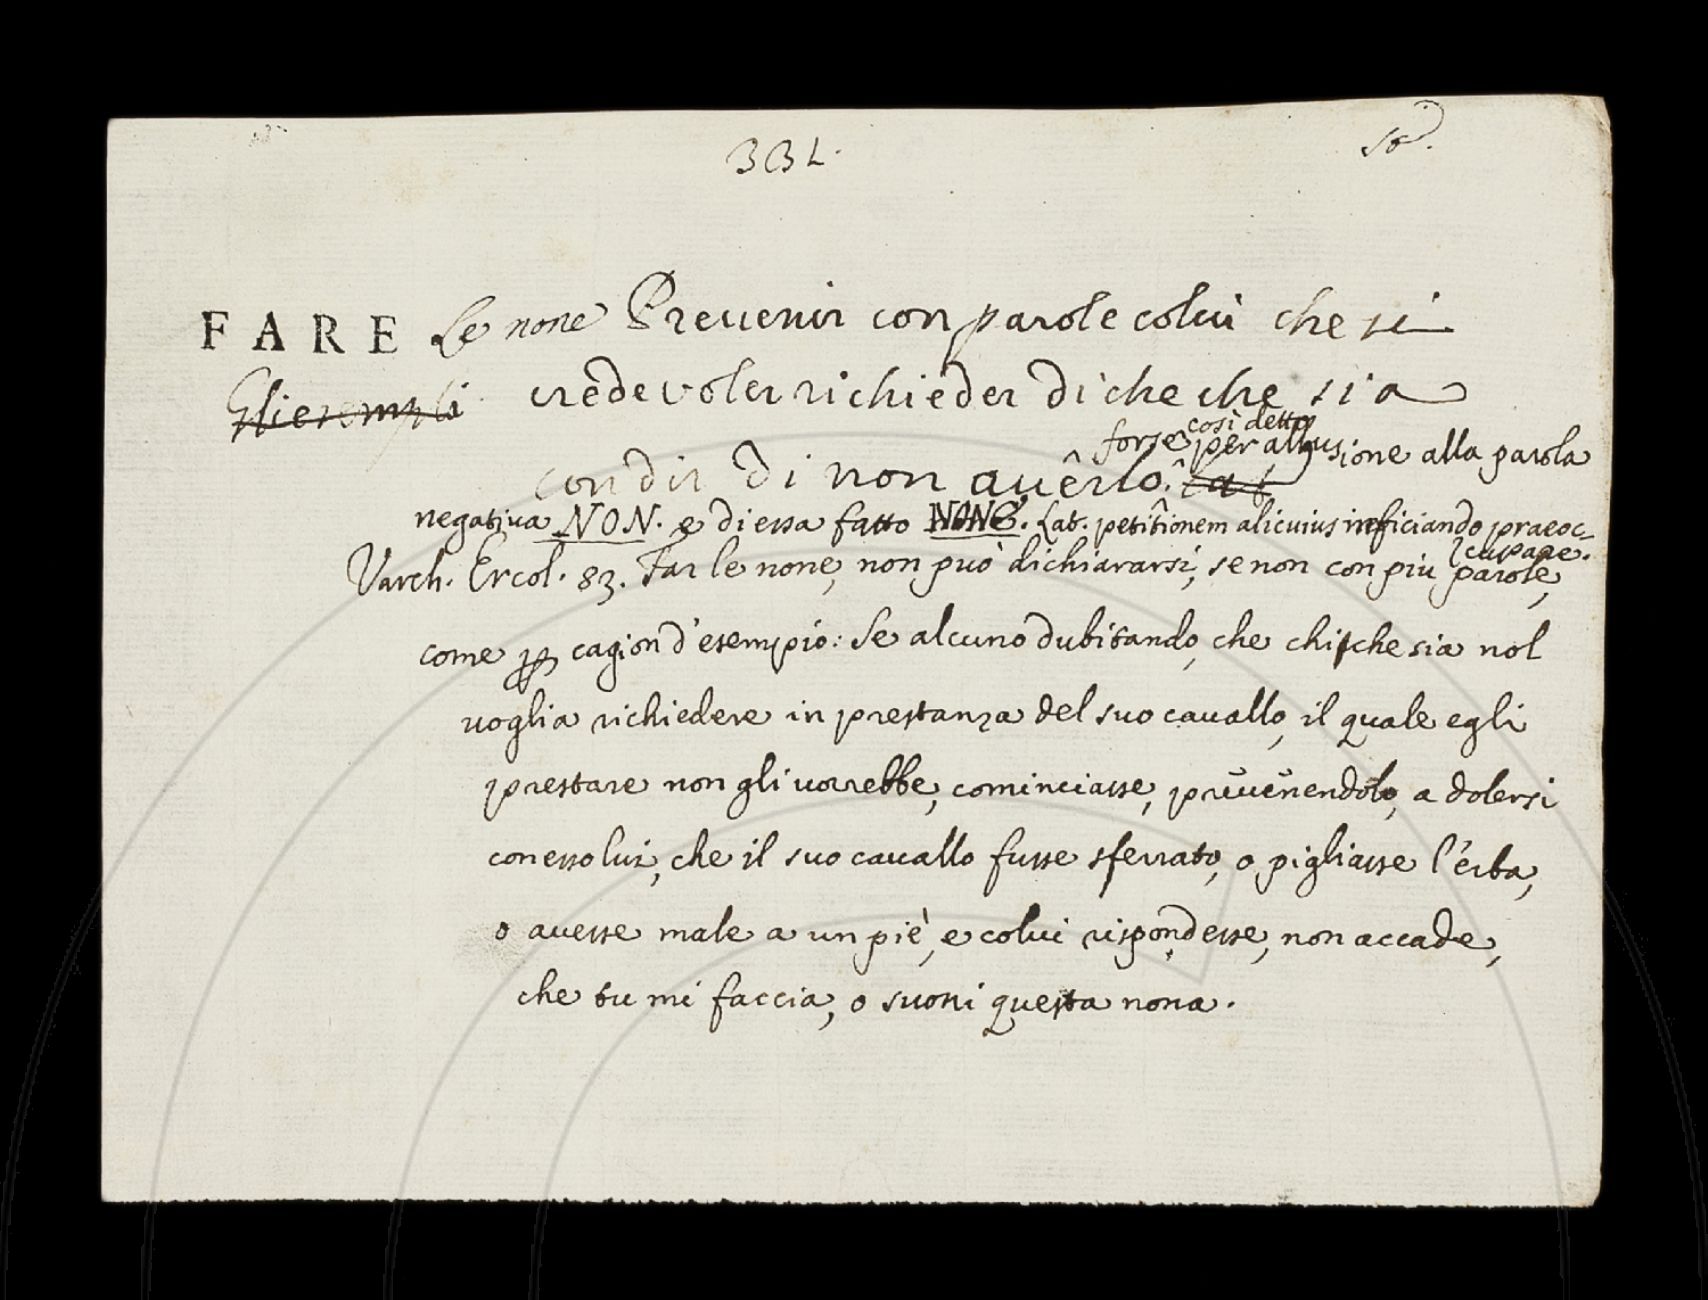 331.
FARE Le none Preuenir con parole colui che si
Gliesempli credevoler richieder di che che sia
forse così detto per allusione alla parola
con dir di non auerlo. Lat
negativa NON. e di essa fatto NONE. Lat. petitionem alicuius inficiando praeoc-
cupare.
Varch. Ercol. 83. Far le none, non può dichiararsi, se non con piu parole,
come p cagion d'esempio: Se alcuno dubitando, che chi che sia nol
voglia richiedere in prestanza del suo cauallo, il quale egli
prestare non gli vorrebbe, cominciasse, preuenendolo, a dolersi
con esso lui, che il suo cauallo fusse sferrato, o pigliasse l'erba,
o auesse male a un piè, e colui rispondesse, non accade,
che tu mi faccia, o suoni questa nona.